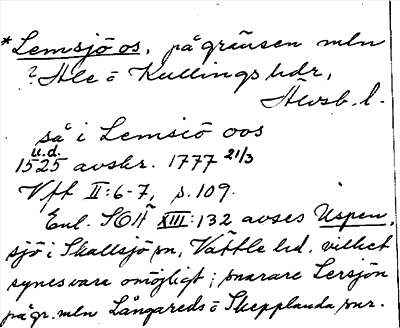 *Lemsjö os, på gränsen mln
? Ale o Kullings hdr,
Älvsb. l.
så i Lemsiö oos
u.d.
1525 avskr. 1777 21/3
Vfft II:6-7, s. 109.
Enl. SOÄ XIII:132 avses Uspen,
sjö i Skallsjö sn, Vättle hd, vilket
synes vara omöjligt; snarare Lersjön
på gr. mln Långareds o Skepplanda snr.